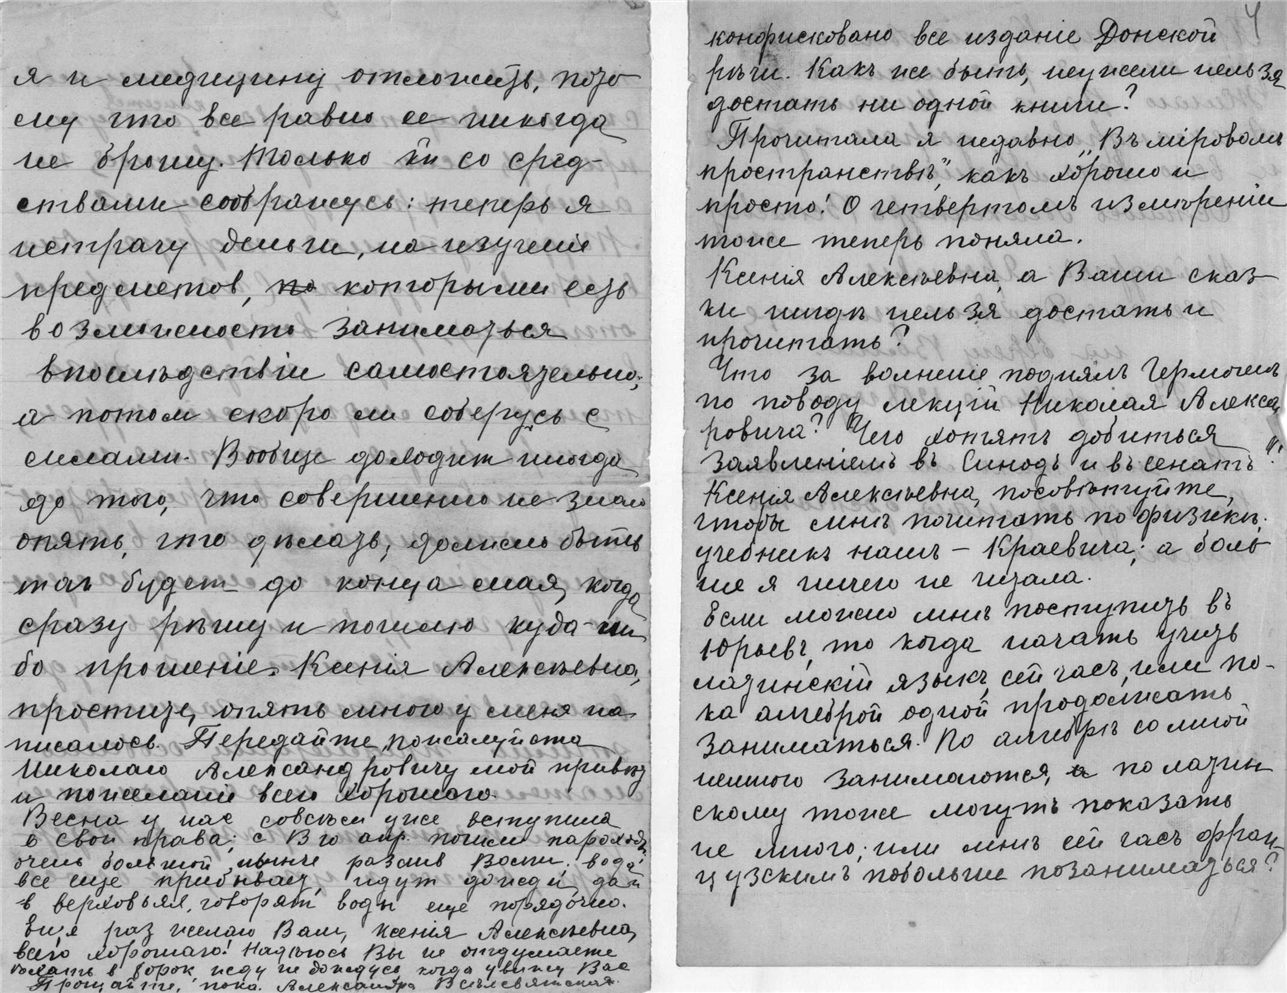 я и медицину отложить, пото
му что все равно ее никогда
не брошу. Только со сред-
ствами собраться: теперь я
истрачу деньги, на изученіе
предметов, по которыми есть
возможность заниматься
впослѣдствіи самостоятельно,
а потом скоро ли соберусь с
силами. Вообще доходит иногда
до того, что совершенно не знаю
опять, что дѣлать, должно быть
так будет до конца мая, когда
сразу рѣшу и пошлю куда-ни
бо прошеніе. Ксенія Алексѣевна,
простите, опять много у меня на
писалось. Передайте, пожалуйста
Николаю Александровичу мой привѣт
и пожеланіе всего хорошаго.
Весна у нас совсѣм уже вступила
в свои права; с апр. пошли пароходы,
очень большой нынче разлив Волги. вода
все еще прибывает, идут дожди, да и
в верховьях, говорят воды еще порядочно.
Еще раз желаю Вам, Ксенія Алексѣевна,
всего хорошаго! Надѣюсь Вы не отдумаете
жду не дождусь, когда увижу Вас
Прощайте, пока. Александра Всесвятская.
4
конфисковано все изданіе Донской
рѣчи. Какъ же быть, неужели нельзя
достать ни одной книги?
Прочитала я недавно „Въ міровомъ
пространствѣ", какъ хорошо и
просто! О четвертомъ измѣреніи
тоже теперь поняла.
Ксенія Алексѣевна, а Ваши сказ-
ки нигдѣ нельзя достать и
прочитать?
Что за волненіе поднялъ Гермогенъ
по поводу лекцій Николая Алексан
ровича? Чего хотятъ добиться
заявленіемъ въ Синодъ и въ сенатъ?!
Ксенія Алексѣевна, посовѣтуйте,
чтобы мнѣ почитать по физикѣ.
учебникъ нашъ – Краевича; а боль
ше я ничего не читала.
Если можно мнѣ поступить въ
Юрьевъ, то когда начать учить
латинскій языкъ, сейчасъ, или по-
ка алгеброй одной продолжать
заниматься. По алгебрѣ со мной
немного занимаются, а по латин
скому тоже могутъ показать
не много; или мнѣ сейчасъ фран-
цузскимъ побольше позаниматься?